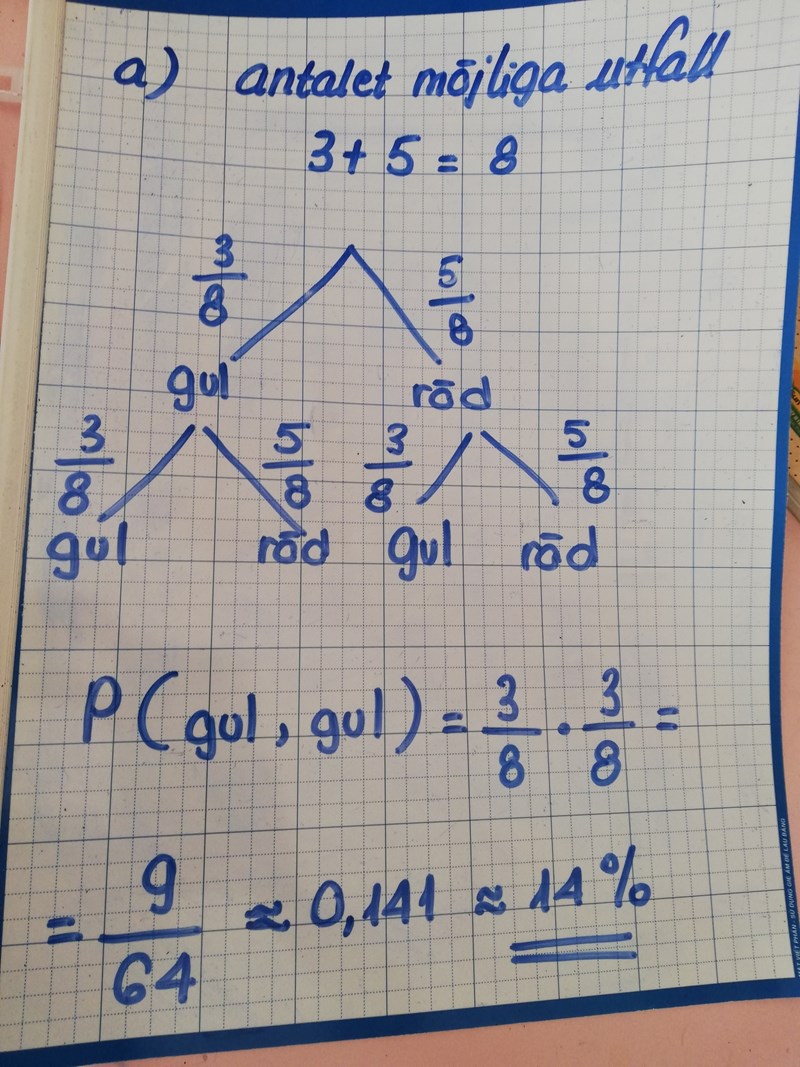 a) antalet möjliga utfall
3 + 5 = 8
3/8 5/8
gul röd
3/8 5/8 3/8 5/8
gul röd gul röd
P(gul, gul) = 3/8 · 3/8 =
= 9/64 ≈ 0,141 ≈ 14%